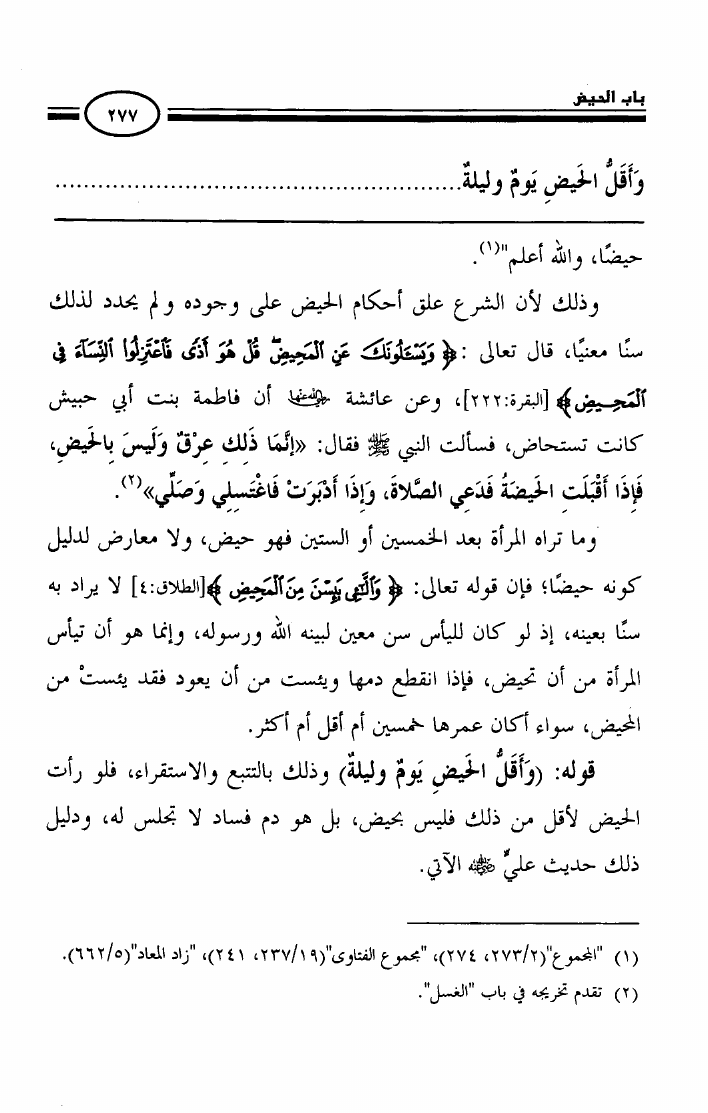 باب الحيض
٢٧٧
وَأَقَلُّ الحَيضِ يَومٌ وليلةٌ.......................................................
حيضًا، والله أعلم"(١).
وذلك لأن الشرع علق أحكام الحيض على وجوده ولم يحدد لذلك
سنًا معنيًا، قال تعالى :﴿ وَيَسْـَٔلُونَكَ عَنِ ٱلْمَحِيضِۖ قُلْ هُوَ أَذًى فَٱعْتَزِلُوا۟ ٱلنِّسَآءَ فِى
ٱلْمَحِيضِ﴾ [البقرة:٢٢٢]، وعن عائشة رضي الله عنها أن فاطمة بنت أبي حبيش
كانت تستحاض، فسألت النبي ﷺ فقال: «إنَّمَا ذَلِكِ عِرْقٌ وَلَيسَ بِالحَيضِ،
فَإِذَا أَقْبَلَتِ الحَيضَةُ فَدَعِي الصَّلاةَ، وَإِذَا أَدْبَرَتْ فَاغْتَسِلي وَصَلِّي»(٢).
وما تراه المرأة بعد الخمسين أو الستين فهو حيض، ولا معارض لدليل
كونه حيضًا؛ فإن قوله تعالى: ﴿ وَٱلَّٰٓـِٔى يَئِسْنَ مِنَ ٱلْمَحِيضِ ﴾[الطلاق:٤] لا يراد به
سنًا بعينه، إذ لو كان لليأس سن معين لبينه الله ورسوله، وإنما هو أن تيأس
المرأة من أن تحيض، فإذا انقطع دمها ويئست من أن يعود فقد يئستْ من
المحيض، سواء أكان عمرها خمسين أم أقل أم أكثر.
قوله: (وَأَقَلُّ الحَيضِ يَومٌ وليلةٌ) وذلك بالتتبع والاستقراء، فلو رأت
الحيض لأقل من ذلك فليس بحيض، بل هو دم فساد لا تجلس له، ودليل
ذلك حديث عليٍّ رضي الله عنه الآتي.
(١) "المجموع"(٢/٢٧٣، ٢٧٤)، "مجموع الفتاوى"(١٩/٢٣٧، ٢٤١)، "زاد المعاد"(٥/٦٦٢).
(٢) تقدم تخريجه في باب "الغسل".